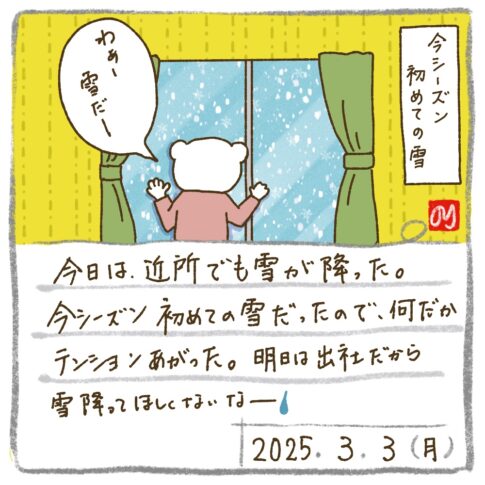 今シーズン
初めての雪
わぁー
雪だー
今日は、近所でも雪が降った。
今シーズン 初めての雪だったので、何だか
テンションあがった。明日は出社だから
雪降ってほしくないなー
2025. 3. 3 (月)